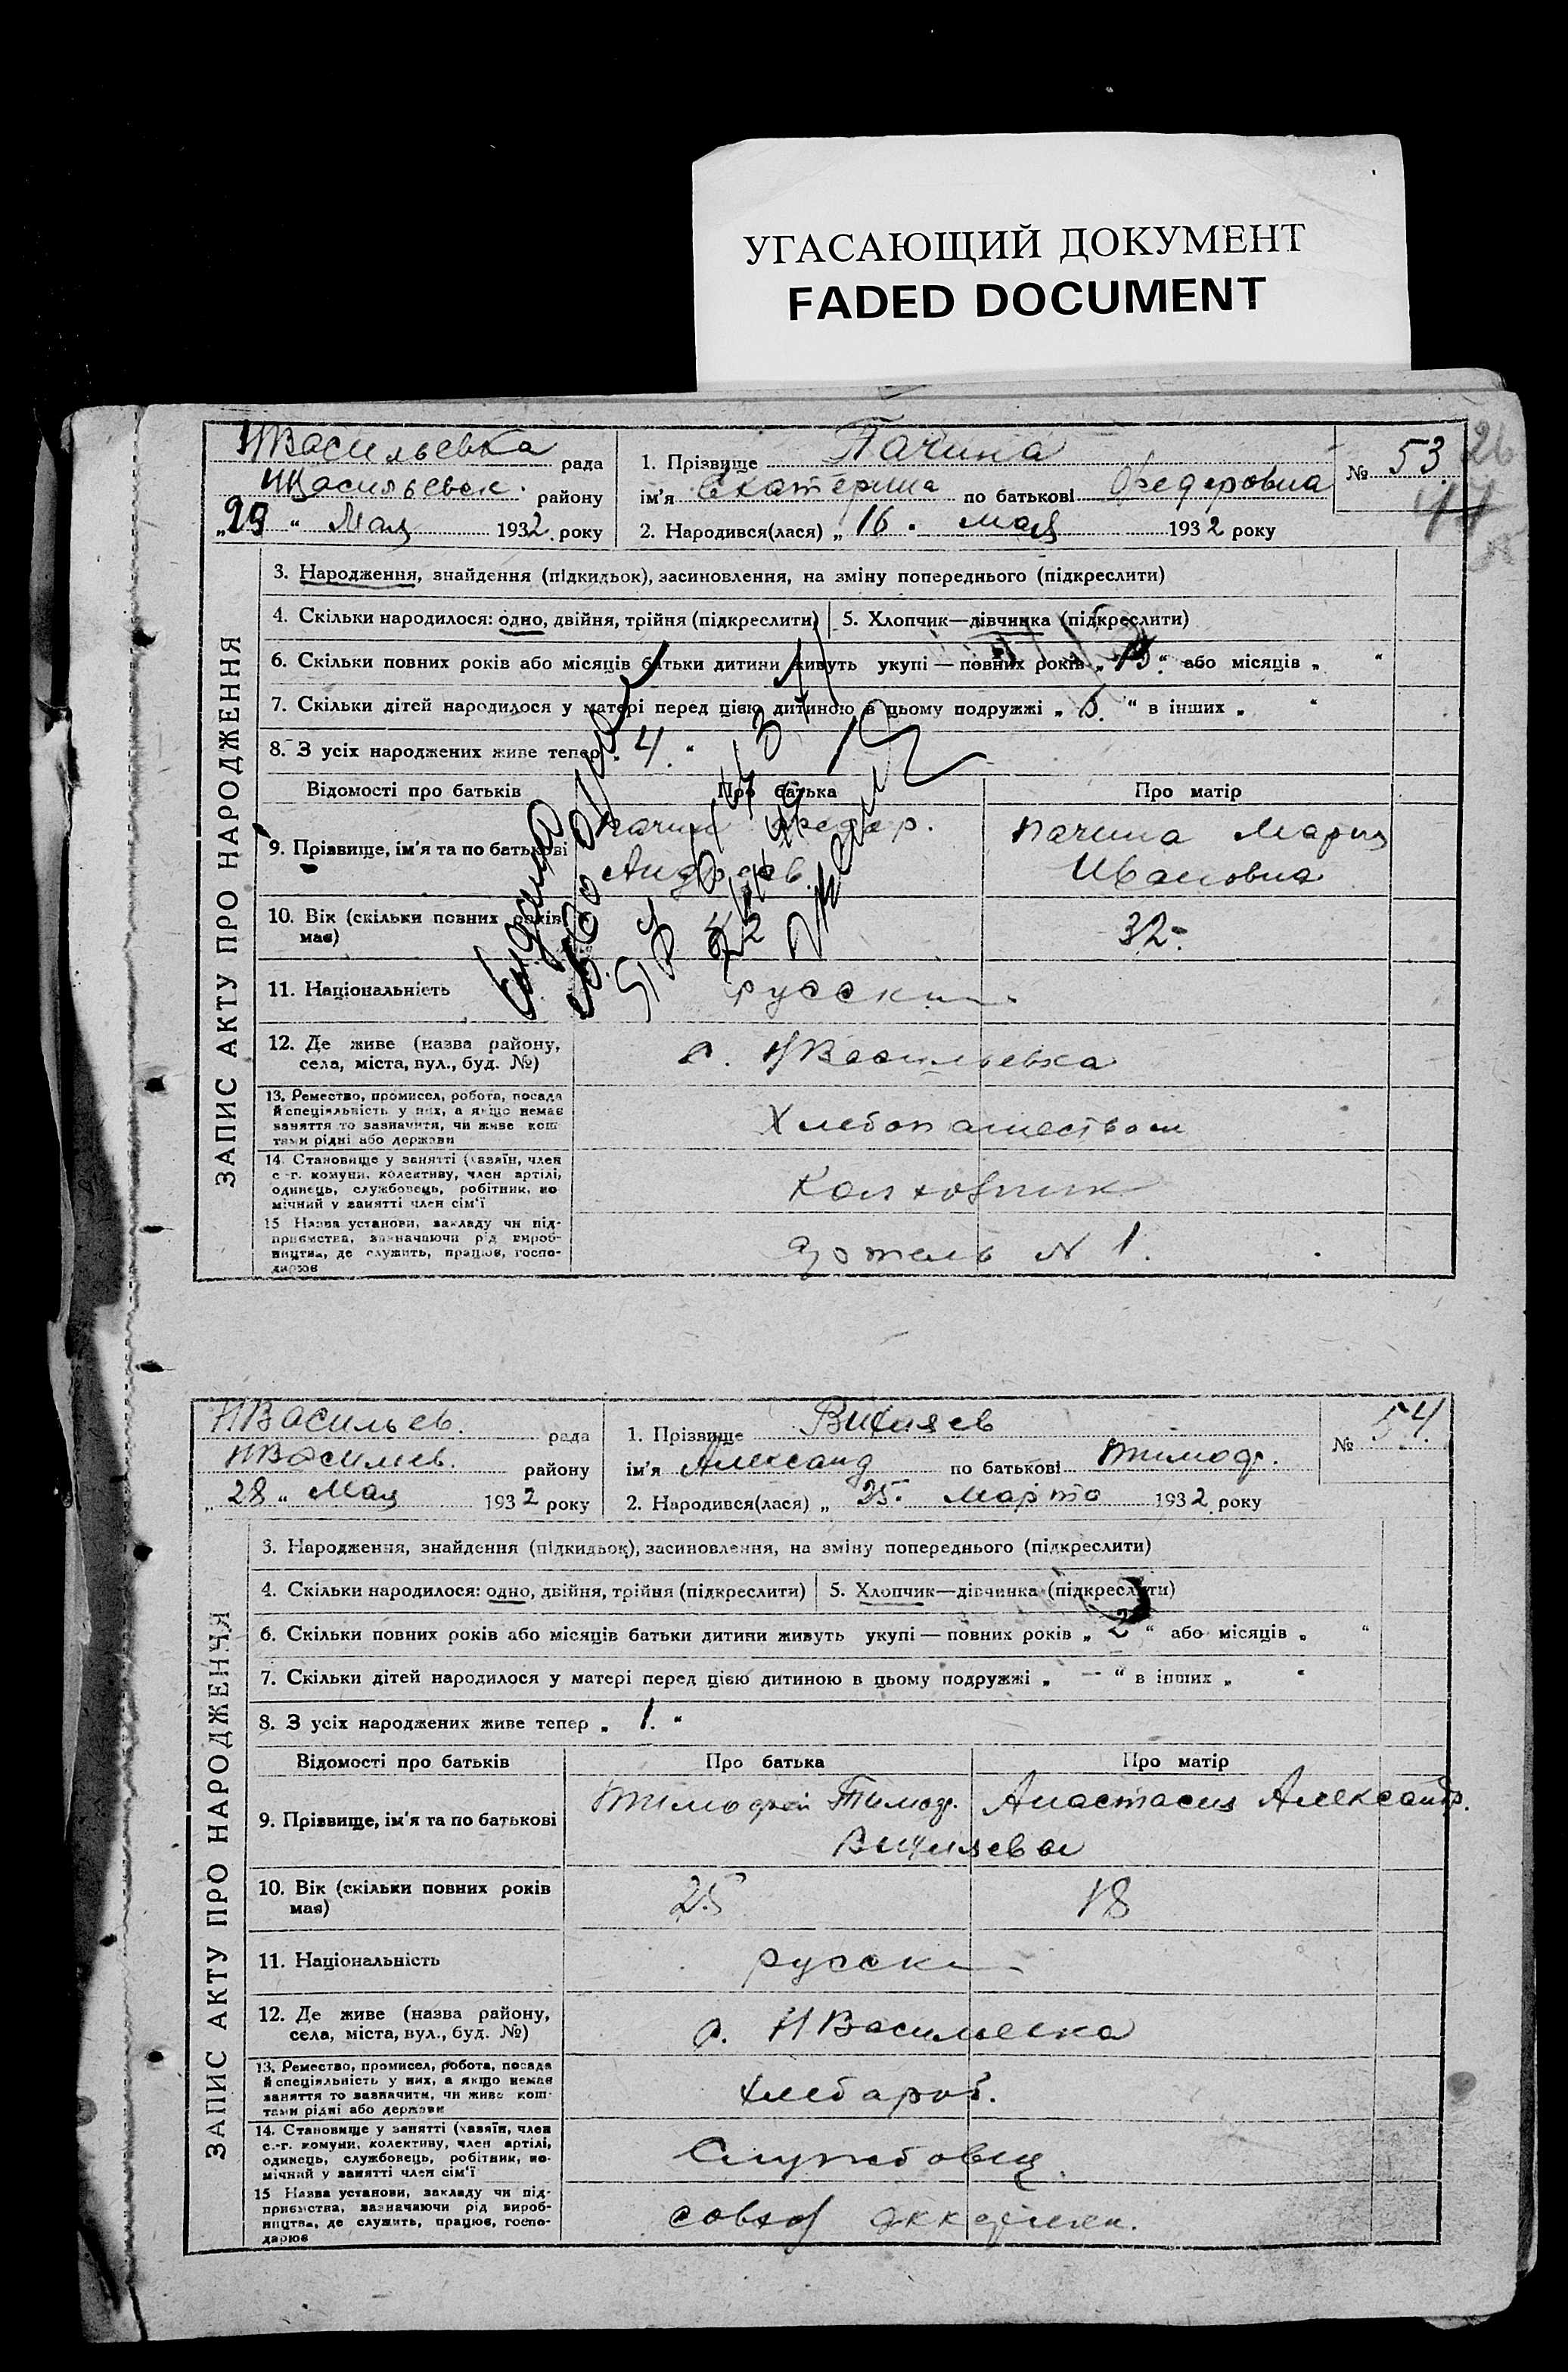 УГАСАЮЩИЙ ДОКУМЕНТ
FADED DOCUMENT
ЗАПИС АКТУ ПРО НАРОДЖЕННЯ
НВасильевка рада
НВасильевск. району
„29“ Мая 1932 року
1. Прізвище Пачина
ім'я Екатерина по батькові Федоровна
2. Народився(лася) „16. мая 1932 року
№ 53
26
3. Народження, знайдення (підкидьок), засиновлення, на зміну попереднього (підкреслити)
4. Скільки народилося: одно, двійня, трійня (підкреслити) 5. Хлопчик—дівчинка (підкреслити)
6. Скільки повних років або місяців батьки дитини живуть укупі — повних років „13.“ або місяців „ “
7. Скільки дітей народилося у матері перед цією дитиною в цьому подружжі „ 6. “ в інших „ “
8. З усіх народжених живе тепер „ 4. “
Відомості про батьків Про батька Про матір
9. Прізвище, ім'я та по батькові
Пачин Федор. Андреев.
Пачина Мария Ивановна
10. Вік (скільки повних років має) 32.
11. Національність русские
12. Де живе (назва району, села, міста, вул., буд. №) с. НВасильевка
13. Ремество, промисел, робота, посада
й спеціяльність у них, а якщо немає
заняття то зазначити, чи живе кош-
тами рідні або держави
Хлебопашеством
14. Становище у занятті (хазяїн, член
с.-г. комуни, колективу, член артілі,
одинець, службовець, робітник, по-
мічний у занятті член сім'ї
Колхозник
15 Назва установи, закладу чи під-
приємства, зазначаючи рід вироб-
ництва, де служить, працює, госпо-
дарює
Артель N 1.
ЗАПИС АКТУ ПРО НАРОДЖЕННЯ
НВасильев. рада
НВасилев. району
„ 28 “ Мая 1932 року
1. Прізвище
ім'я Александ по батькові Тимоф.
2. Народився(лася) „ 25. Марта 1932 року
№ 54.
3. Народження, знайдення (підкидьок), засиновлення, на зміну попереднього (підкреслити)
4. Скільки народилося: одно, двійня, трійня (підкреслити) 5. Хлопчик—дівчинка (підкреслити)
6. Скільки повних років або місяців батьки дитини живуть укупі — повних років „ 2 “ або місяців „ “
7. Скільки дітей народилося у матері перед цією дитиною в цьому подружжі „ — “ в інших „ “
8. З усіх народжених живе тепер „ 1. “
Відомості про батьків Про батька Про матір
9. Прізвище, ім'я та по батькові
Тимофей Тимоф. Анастасия Александр.
10. Вік (скільки повних років має) 25 18
11. Національність русски
12. Де живе (назва району, села, міста, вул., буд. №) с. НВасилевка
13. Ремество, промисел, робота, посада
й спеціяльність у них, а якщо немає
заняття то зазначити, чи живе кош-
тами рідні або держави
Хлебароб.
14. Становище у занятті (хазяїн, член
с.-г. комуни, колективу, член артілі,
одинець, службовець, робітник, по-
мічний у занятті член сім'ї
Службовец.
15 Назва установи, закладу чи під-
приємства, зазначаючи рід вироб-
ництва, де служить, працює, госпо-
дарює
совхоз